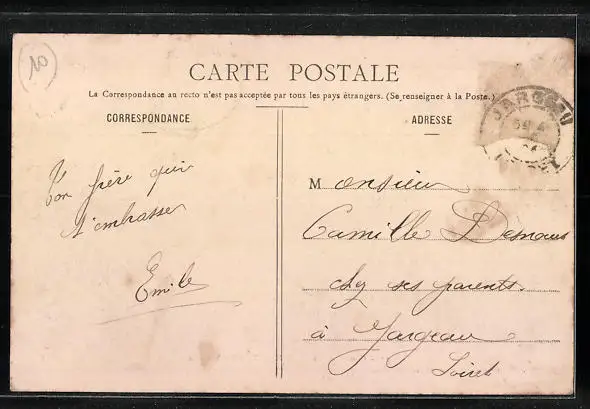 10
CARTE POSTALE
La Correspondance au recto n'est pas acceptée par tous les pays étrangers. (Se renseigner à la Poste.)
JARGEAU
CORRESPONDANCE
ADRESSE
Ton frère qui
t'embrasse
Emile
Monsieur
Camille
chez ses parents
à Jargeau
Loiret